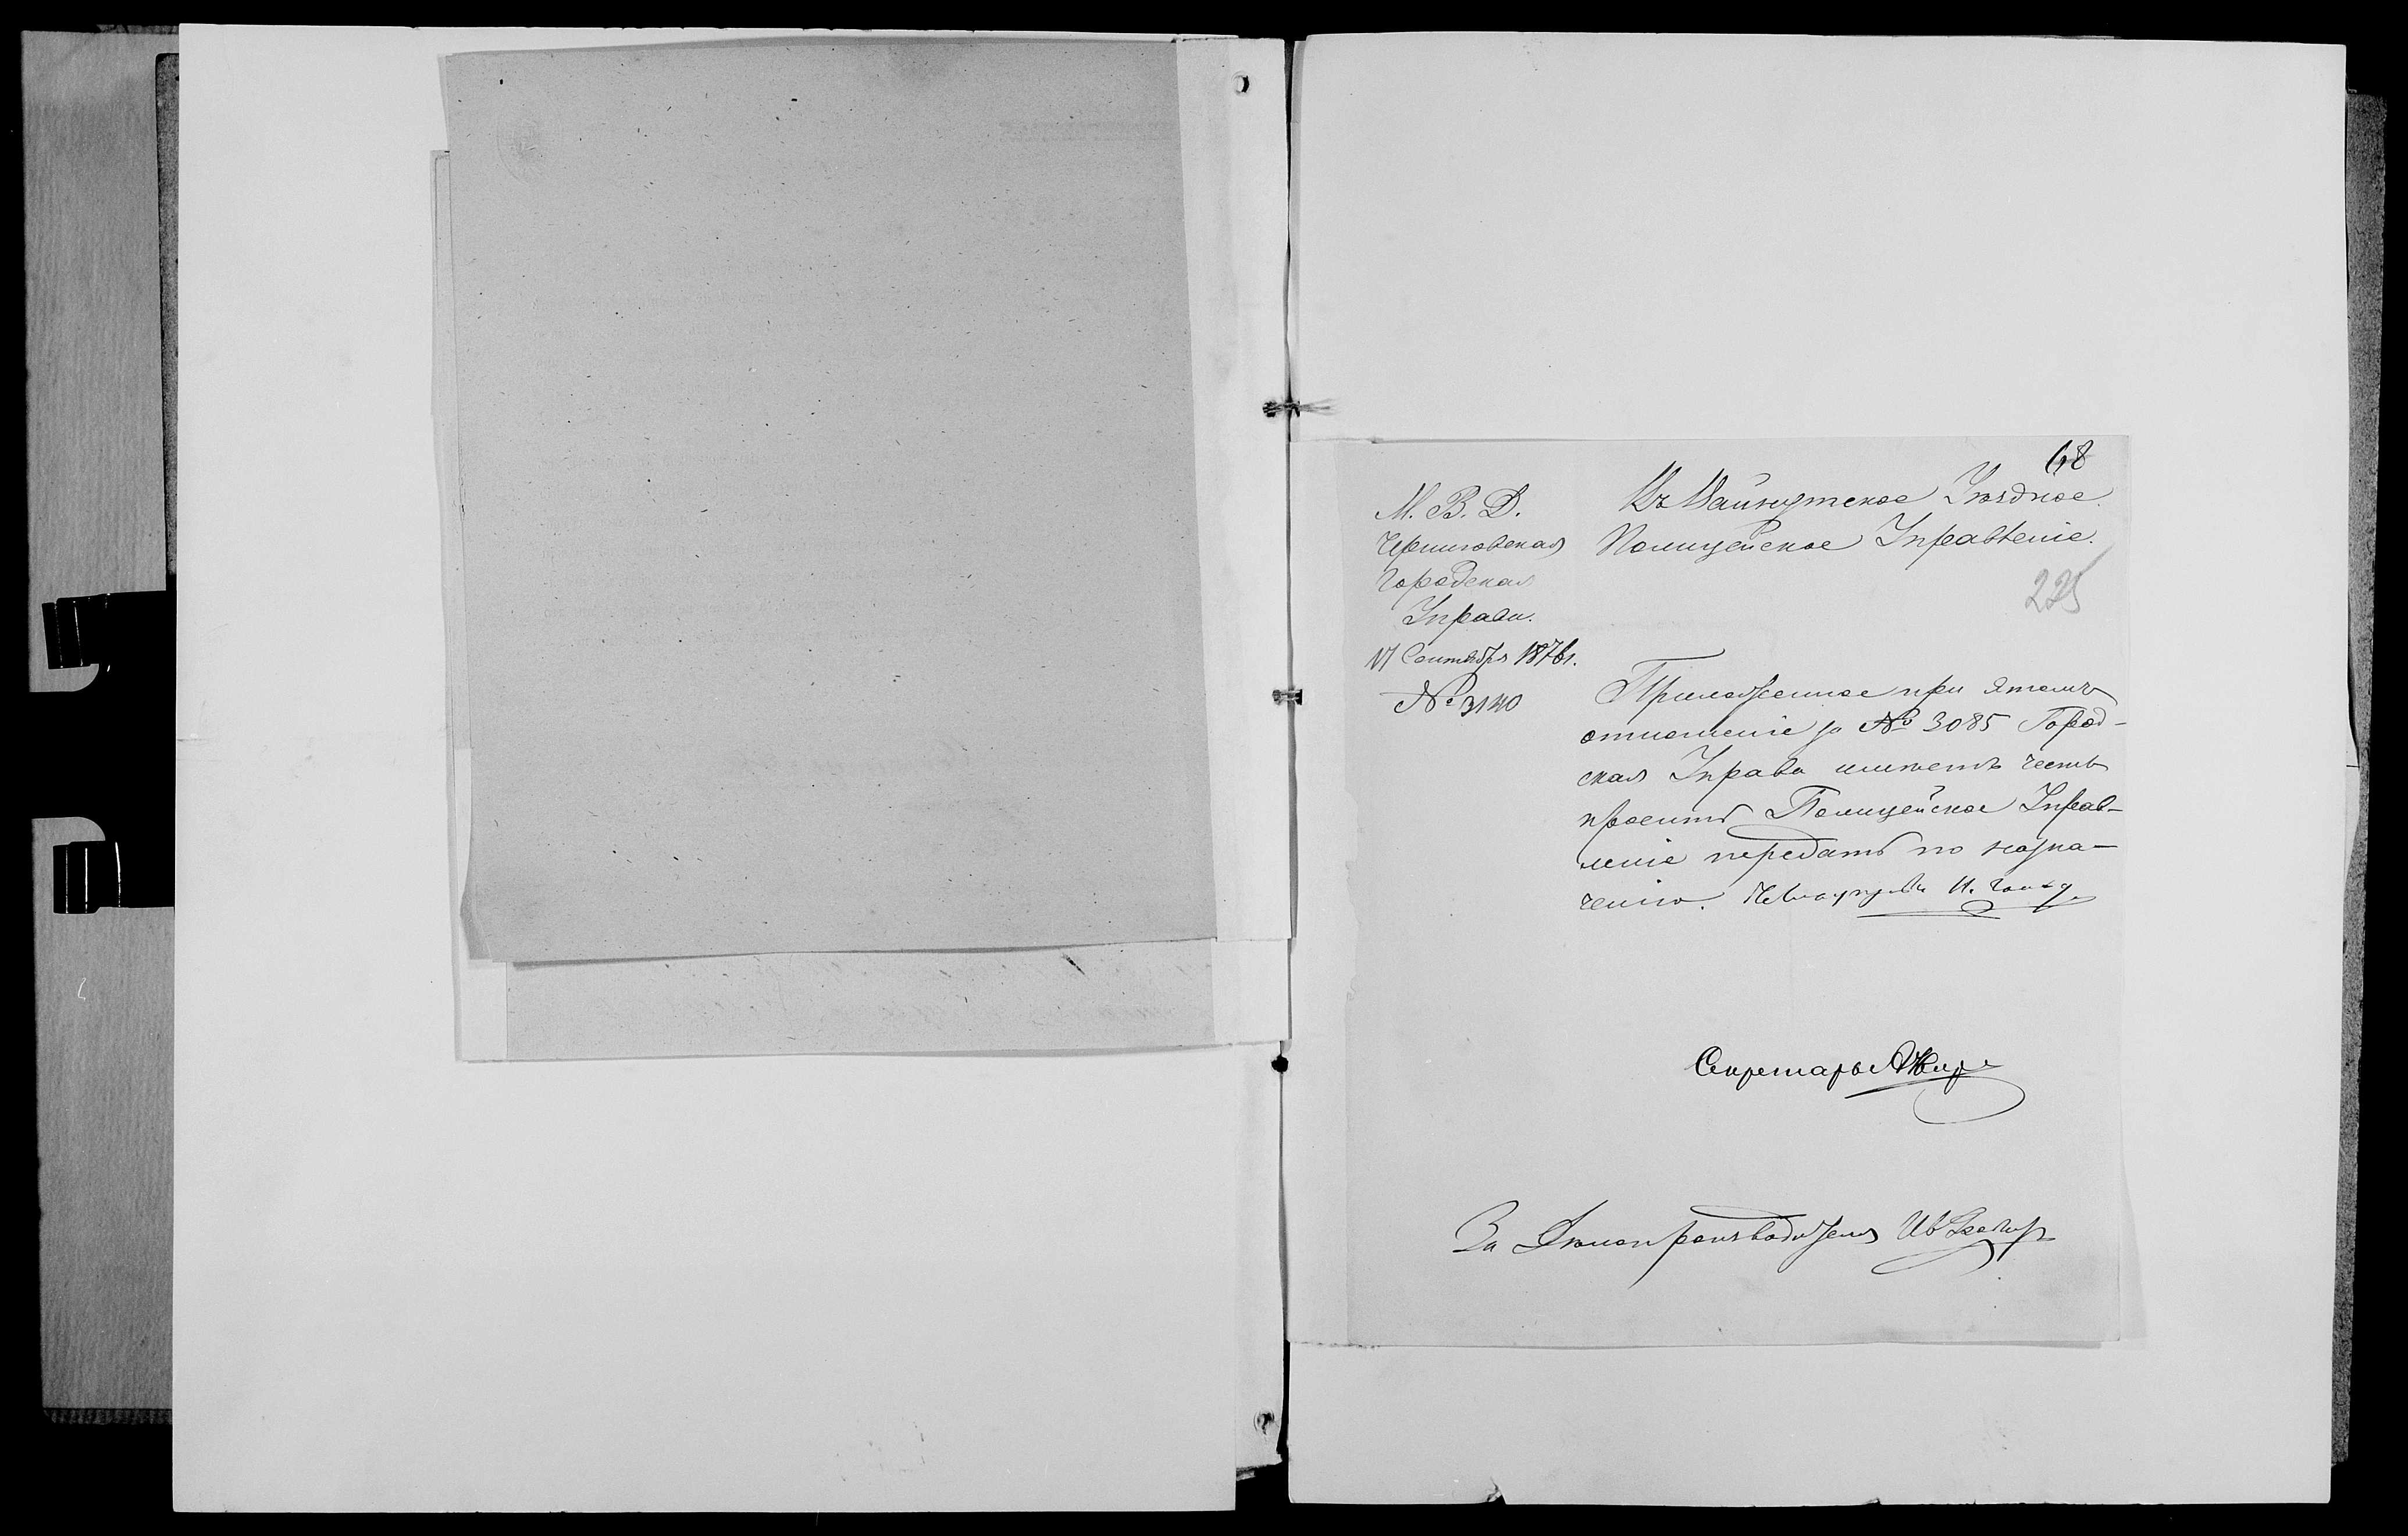 68
М. В. Д.
Черниговская
Городская
Управа.
17 Сентября 1876 г.
№ 3140
Въ Уѣздное
Полицейское Управленіе.
225
Приложенное при этомъ
отношеніе за № 3085 Город-
ская Управа имѣетъ честь
просить Полицейское Управ-
леніе передать по назна-
ченію.
Секретарь
За Дѣлопроизводителя